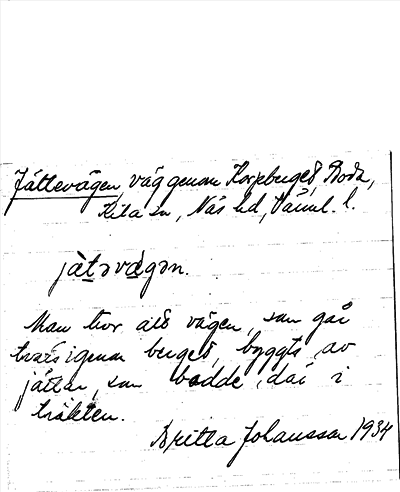 Jättevägen, väg genom Korpberget, Boda,
Kila sn, Näs hd, Värml. l.
jät̲əvägən.
Man tror att vägen, som går
tvärs igenom berget, byggts av
jättar, som bodde där i
trakten.
Britta Johansson 1934